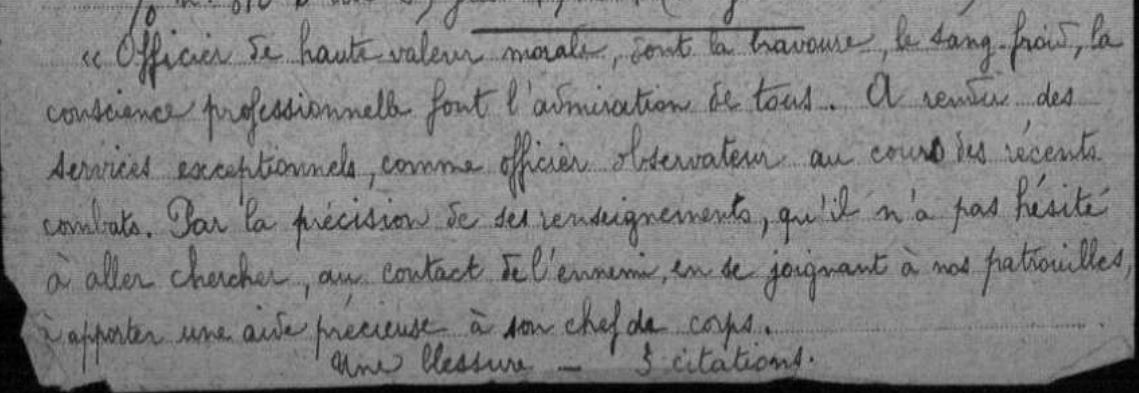 « Officier de haute valeur morale, dont la bravoure, le sang-froid, la
conscience professionnelle font l'admiration de tous. A rendu des
services exceptionnels, comme officier observateur au cours des récents
combats. Par la précision de ses renseignements, qu'il n'a pas hésité
à aller chercher, au contact de l'ennemi, en se joignant à nos patrouilles,
à apporter une aide précieuse à son chef de corps.
Une blessure — citations.